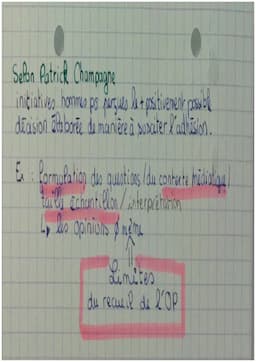 Selon Patrick Champagne
initiatives hommes po perçues le + positivement possible
décision élaborée de manière à susciter l'adhésion.
Ex : formulation des questions / du contexte médiatique /
taille échantillon / interprétation
↳ les opinions ∅ même
Limites
du recueil de l'OP